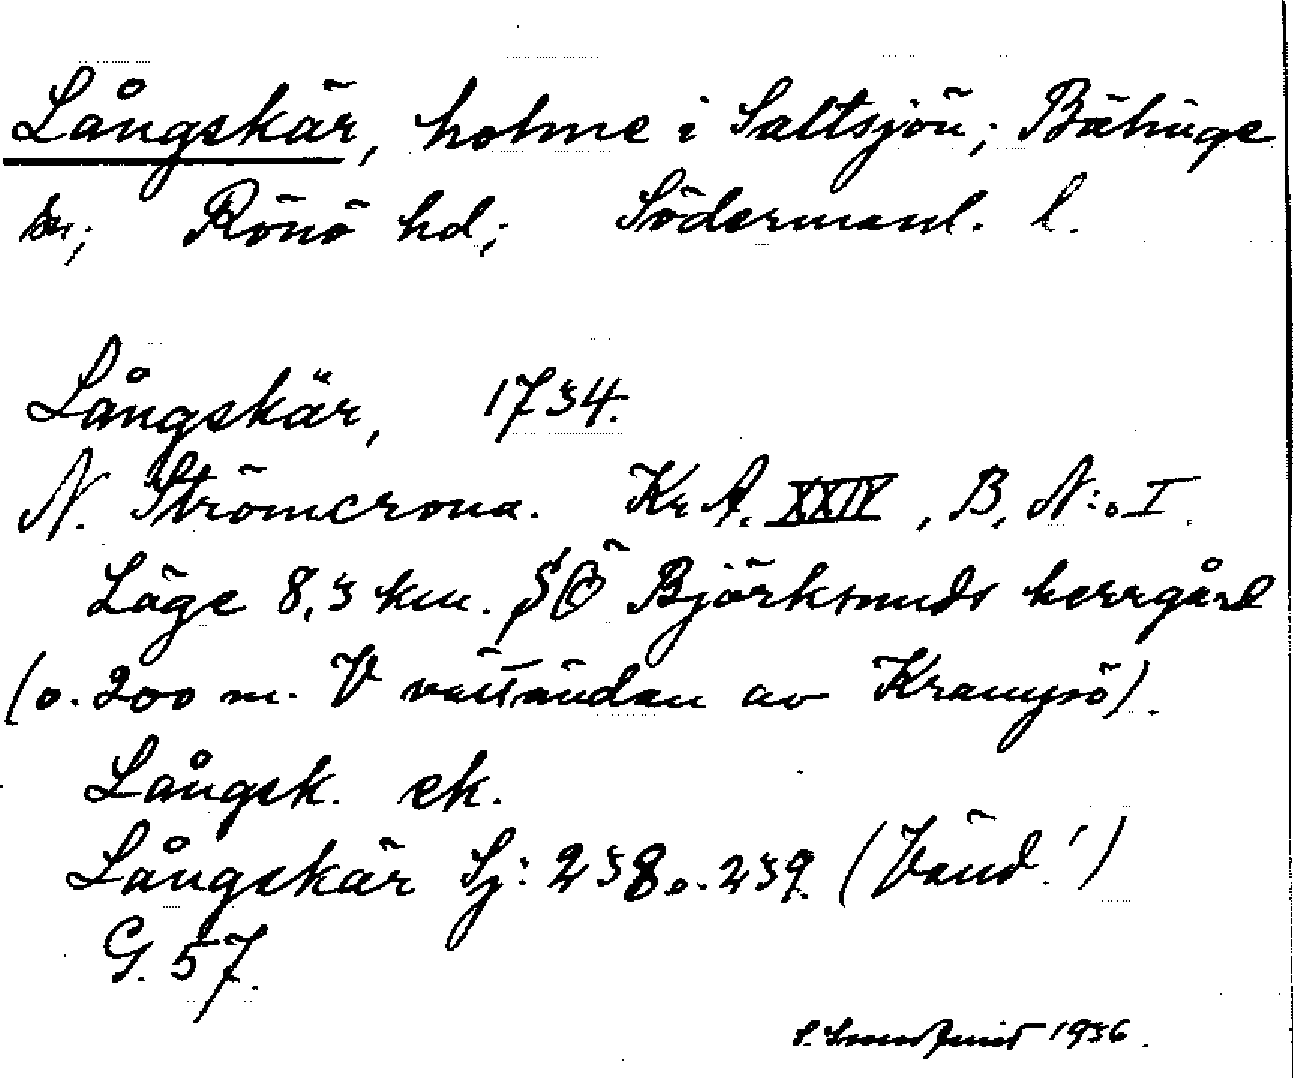 Långskär, holme i Saltsjön; Bälinge
sn; Rönö hd; Södermanl. l.
Långskär, 1734.
N. Strömcrona. Kr. A. XXIV, B, N:o I.
Läge 8,3 km. SÖ Björksunds herrgård
(o. 200 m. V väständan av Kramsö).
Långsk. ek.
Långskär Sj: 238 o. 239. (Vänd!)
G. 57.
1936.